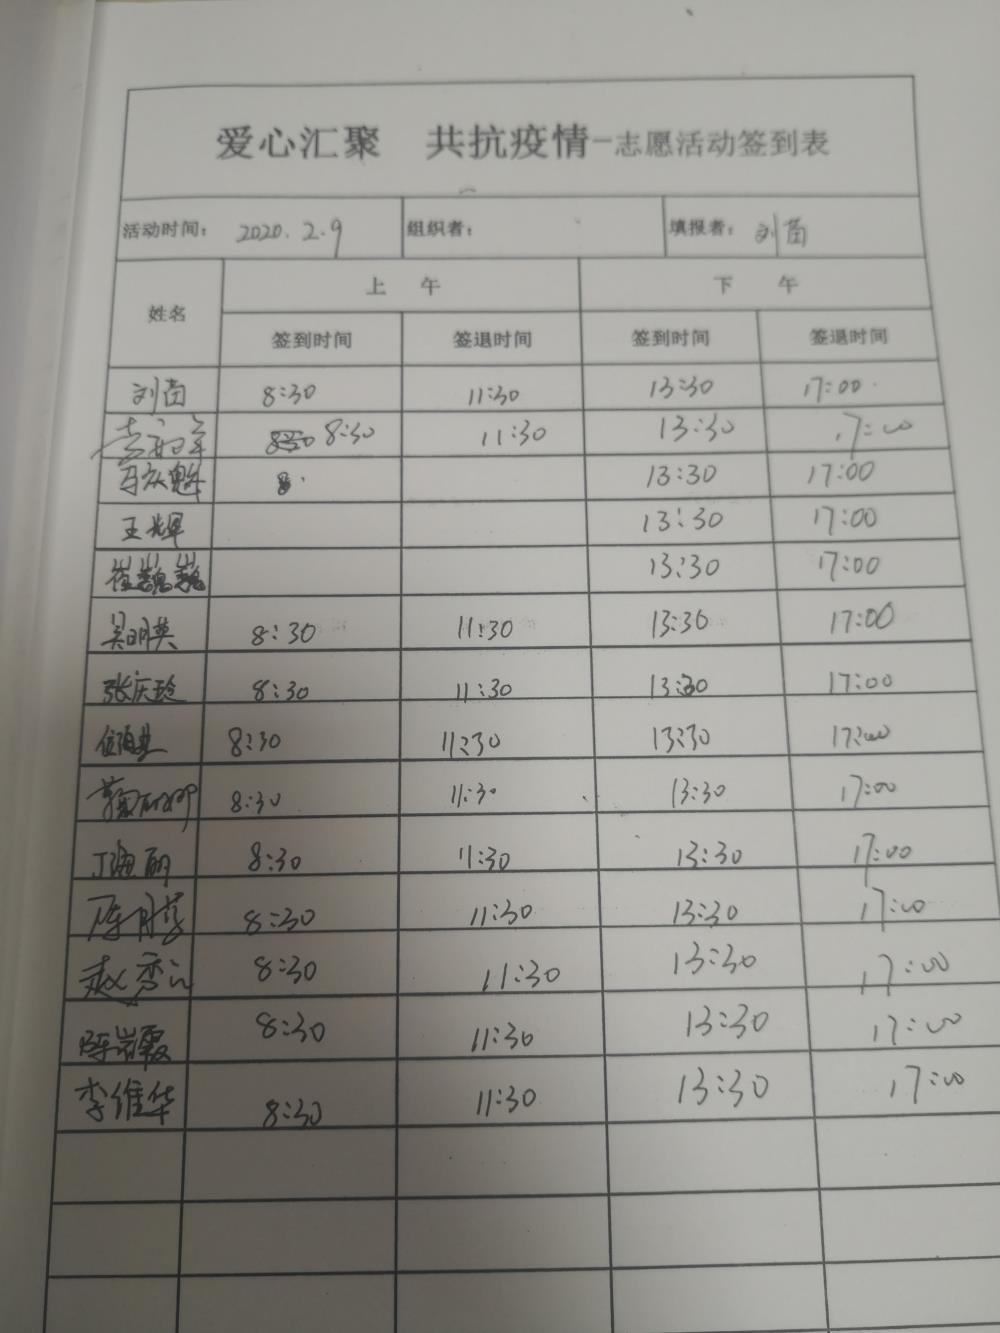 爱心汇聚 共抗疫情-志愿活动签到表
活动时间: 2020.2.9 组织者: 填报者: 刘茵
姓名 上午 下午
签到时间 签退时间 签到时间 签退时间
刘茵 8:30 11:30 13:30 17:00
8:30 11:30 13:30 17:00
马庆魁 13:30 17:00
王光军 13:30 17:00
崔巍巍 13:30 17:00
吴明英 8:30 11:30 13:30 17:00
张庆玲 8:30 11:30 13:30 17:00
8:30 11:30 13:30 17:00
8:30 11:30 13:30 17:00
丁海丽 8:30 11:30 13:30 17:00
陈月 8:30 11:30 13:30 17:00
赵秀 8:30 11:30 13:30 17:00
陈岩霞 8:30 11:30 13:30 17:00
李维华 8:30 11:30 13:30 17:00